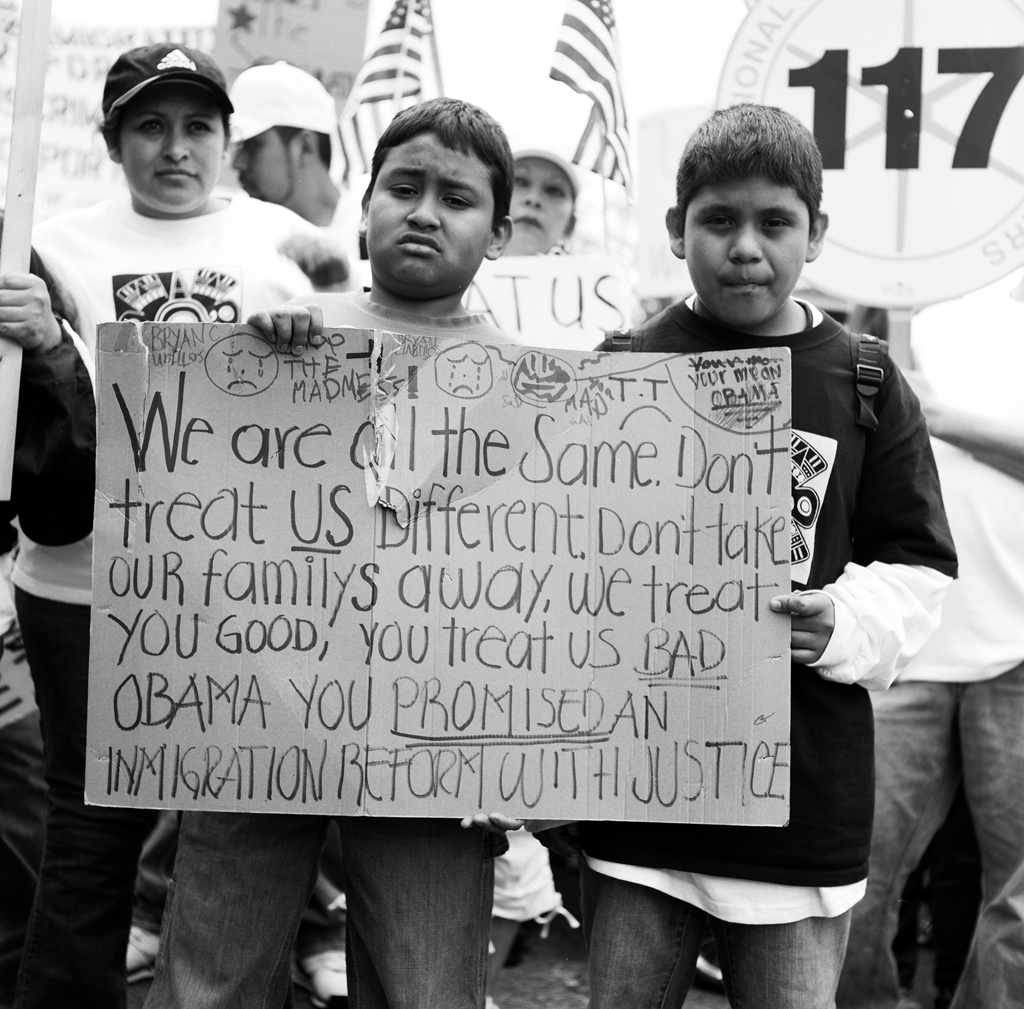 117
AT US
STOP
THE
MADNESS!
MAD T.T
your mean
OBAMA
We are all the Same. Don't
treat US Different. Don't take
OUR familys away. We treat
YOU GOOD, you treat us BAD
OBAMA YOU PROMISED AN
INMIGRATION REFORM WITH JUSTICE